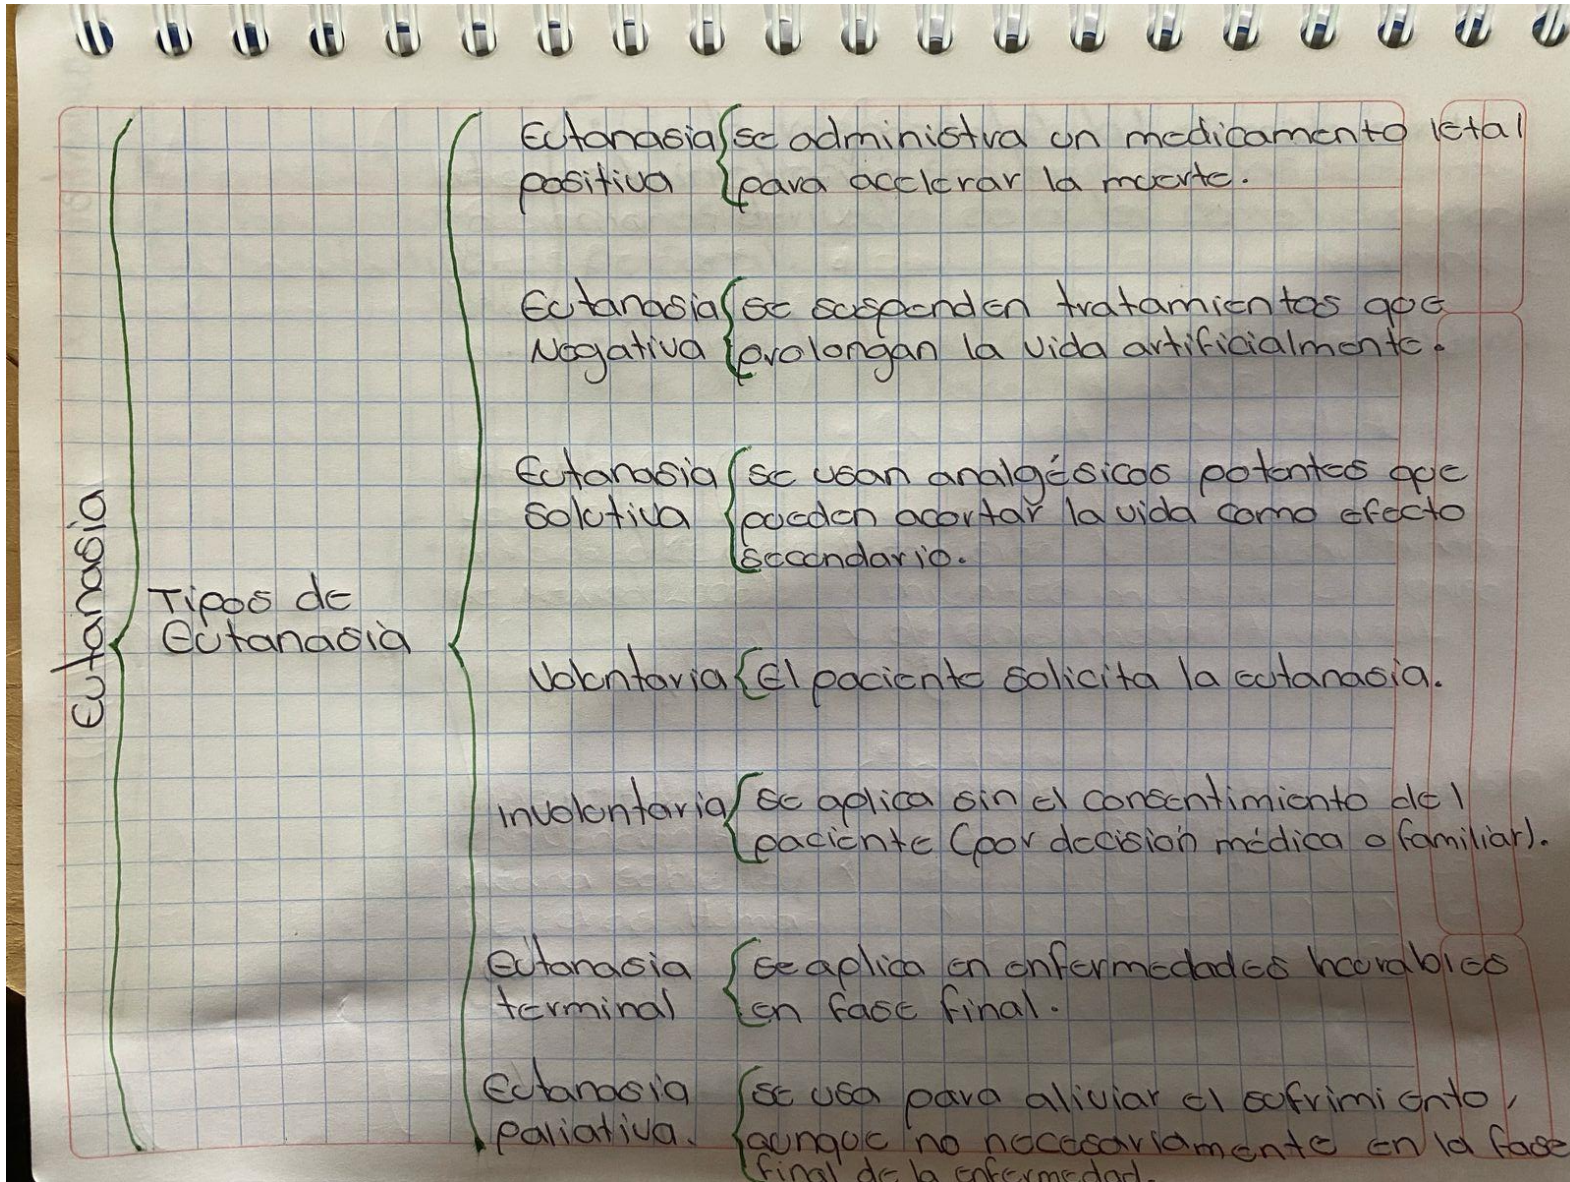 Eutanasia
Tipos de
Eutanasia
Eutanasia
positiva
se administra un medicamento letal
para acelerar la muerte.
Eutanasia
Negativa
se suspenden tratamientos que
prolongan la vida artificialmente.
Eutanasia
solutiva
se usan analgésicos potentes que
pueden acortar la vida como efecto
secundario.
Voluntaria
El paciente solicita la eutanasia.
involuntaria
se aplica sin el consentimiento del
paciente (por decisión médica o familiar).
eutanasia
terminal
se aplica en enfermedades incurables
en fase final.
Eutanasia
paliativa.
se usa para aliviar el sufrimiento,
aunque no necesariamente en la fase
final de la enfermedad.